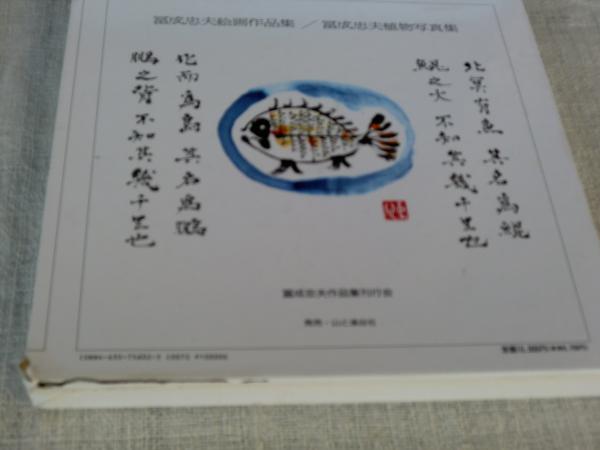 冨成忠夫絵画作品集／冨成忠夫植物写真集
北冥有魚 其名為鯤
鯤之大 不知其幾千里也
化而為鳥 其名為鵬
鵬之背 不知其幾千里也
冨成忠夫作品集刊行会
発売・山と溪谷社